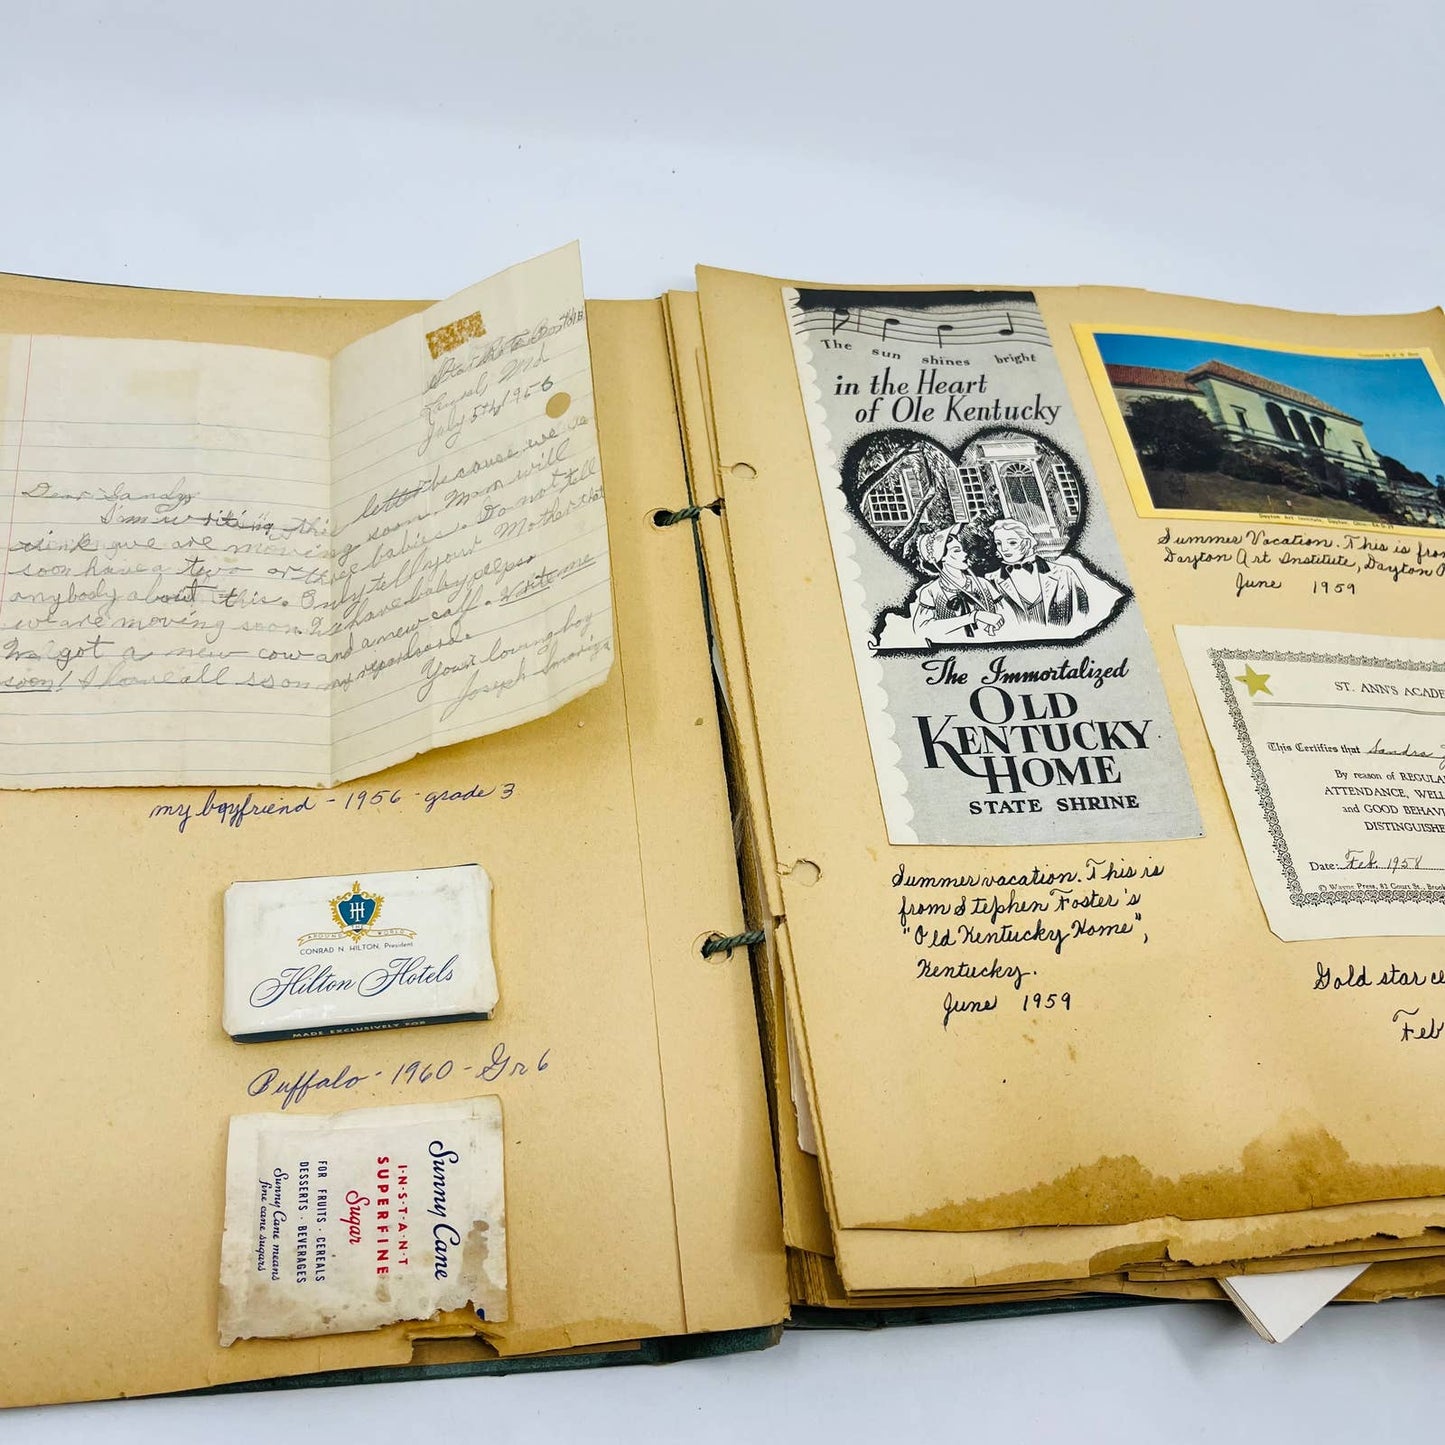 Laurel, Md
July 5th, 1956
Dear Sandy,
I'm writing this letter because we
are moving soon. Mom will
soon have a two or three babies. Do not tell
anybody about this. Only tell your Mother that
we are moving soon. We have baby
got a new cow and a new calf. Write me
soon! I have all
Your loving boy
Joseph
my boyfriend - 1956 - grade 3
AROUND THE WORLD
CONRAD N. HILTON, President
Hilton Hotels
MADE EXCLUSIVELY FOR
Buffalo - 1960 - Gr 6
Sunny Cane
I·N·S·T·A·N·T
SUPERFINE
Sugar
FOR FRUITS · CEREALS
DESSERTS · BEVERAGES
Sunny Cane means
fine cane sugars
The sun shines bright
in the Heart
of Ole Kentucky
The Immortalized
OLD
KENTUCKY
HOME
STATE SHRINE
Summer vacation. This is
from Stephen Foster's
"Old Kentucky Home",
Kentucky.
June 1959
Dayton Art Institute, Dayton, Ohio
Summer Vacation. This is from
Dayton Art Institute, Dayton
June 1959
ST. ANN'S
This Certifies that Sandra
By reason of
ATTENDANCE,
and GOOD
Date: Feb. 1958
© Wayne Press, 82 Court St.,
Gold star
Feb